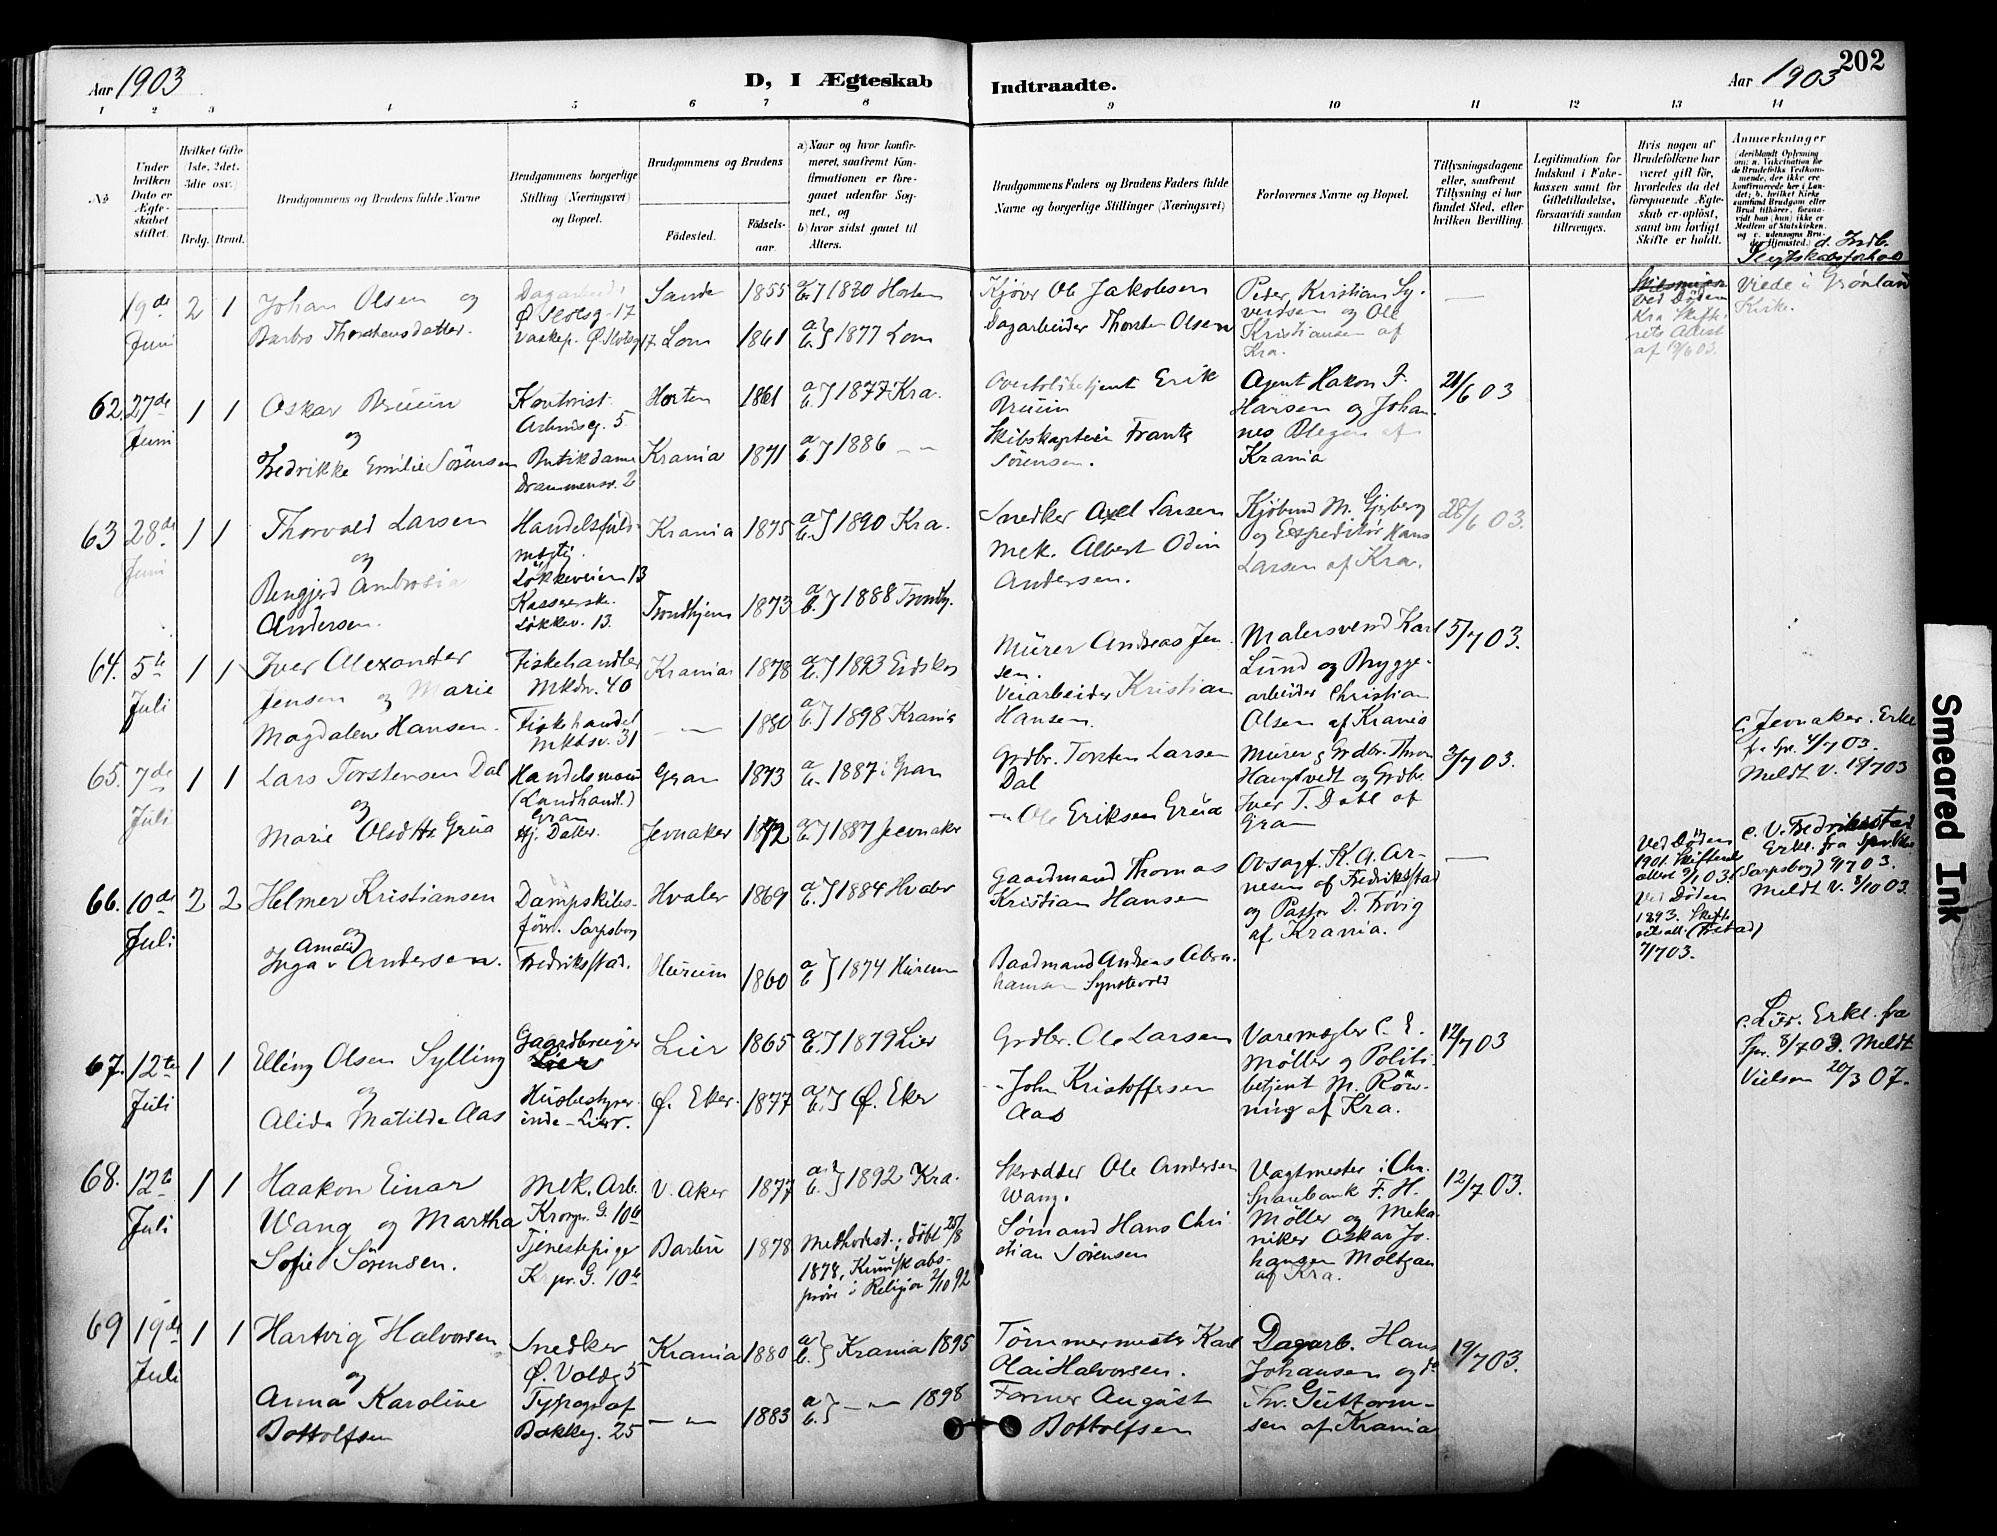 202
Aar 1903
D, I Ægteskab
Indtraadte.
Aar 1903
1 2 3 4 5 6 7 8 9 10 11 12 13 14
No
Under hvilken Dato er Ægteskabet stiftet.
Hvilket Gifte (1ste, 2det, 3die osv.)
Brdg. Brud.
Brudgommens og Brudens fulde Navne
Brudgommens borgerlige Stilling (Næringsvei) og Bopæl.
Brudgommens og Brudens
Födested.
Födselsaar.
a) Naar og hvor konfirmeret, saafremt Konfirmationen er foregaaet udenfor Sognet, og
b) hvor sidst gaaet til Alters.
Brudgommens Faders og Brudens Faders fulde Navne og borgerlige Stillinger (Næringsvei)
Forlovernes Navne og Bopæl.
Tillysningsdagene eller, saafremt Tillysning ei har fundet Sted, efter hvilken Bevilling.
Legitimation for Indskud i Enkekassen samt for Giftetilladelse, forsaavidt saadan tiltrænges.
Hvis nogen af Brudefolkene har været gift för, hvorledes da det foregaaende Ægteskab er oplöst, samt om lovligt Skifte er holdt.
Anmærkninger
(deriblandt Oplysning om: a. Vakcination for de Brudefolks Vedkommende, der ikke ere konfirmerede her i Landet; b. hvilket Kirkesamfund Brudgom eller Brud tilhörer, forsaavidt han (hun) ikke er Medlem af Statskirken, og c. udensogns Brudes Hjemsted.
d. Indb. Slegtskabsforhold
19de Juni 2 1
Johan Olsen og
Barbro Thorstensdatter.
Ø. Slotsg. 17
Vaskep. Ø. Slotsg 17
Sande 1855 1870 Horten
Lom 1861 a b} 1877 Lom
Kjører Ole Jakobsen
Dagarbeider Thorsten Olsen
Peder Kristian Syverdsen og Ole
Kristiansen af
Kra.
—
Ved Døden
Kra Skifterets Attest
af 19/6 03.
Viede i Grønland
Kirke.
62. 27de Juni 1 1
Oskar Bruun
og
Fredrikke Emilie Sörensen
Kontorist
Arbindsg. 5
Butikdame
Drammensv. 2
Horten 1861 a b} 1877 Kra.
Krania 1871 a b} 1886 — " —
Overbetjent Erik
Bruun
Skibskaptein Frantz
Sörensen.
Agent Hakon F.
Hansen og Johannes Blegen af
Krania
21/6 03
63 28de Juni 1 1
Thorvald Larsen
og
Bengjerd Ambrosia
Andersen.
Handelsfuldmægtig
Løkkeveien 13
Kassererske.
Løkkev. 13.
Krania 1875 a b} 1890 Kra.
Trondhjem 1873 a b} 1888 Trondhj.
Snedker Axel Larsen
Mek. Albert Odin
Andersen.
Kjøbmd M. Gjeberg
og Expeditör Hans
Larsen af Kra.
28/6 03.
64. 5te Juli 1 1
Iver Alexander
Jensen og Marie
Magdalene Hansen.
Fiskehandler
Mkdv. 40
Fiskehandel
Mkdsv. 31
Krania 1878 a b} 1893 Eidskog
— " — 1880 a b} 1898 Krania
Murer Andreas Jensen.
Veiarbeider Kristian
Hansen.
Malersvend Karl
Lund og Bryggearbeider Christian
Olsen af Krania
5/7 03.
65. 7de Juli 1 1
Lars Torstensen Dal
og
Marie Olsdttr Grua
Handelsmand
(Landhandl.)
Gran
Hj. Datter.
Gran 1873 1887 i Gran
Jevnaker 1872 a b} 1887 Jevnaker
Grdbr. Torsten Larsen
Dal
— " — Ole Eriksen Grua
Murer & Grdbr. Thron
Haugtvedt og Grdbr.
Iver T. Dahl af
Gran
3/7 03.
c. Jevnaker. Erkl.
fr. Spr. 4/7 03.
Meldt V. 18/7 03
66. 10de Juli 2 2
Helmer Kristiansen
og
Inga Amalie Andersen.
Dampskibsförer. Sarpsborg
Fredriksstad.
Hvaler 1869 a b} 1884 Hvaler
Hurum 1860 a b} 1874 Hurum
Gaardmand Thomas
Kristian Hansen
Baadmand Andreas Abrahamsen Synstevold
Ovsagf. K. A. Arnesen af Fredriksstad
og Pastor D. Trøvig
af Krania.
—
Ved Døden
1901. Skifterets
attest 9/7 03.
Ved Døden
1893. Skifterets att. (Frstad)
7/7 03.
c. V. Fredriksstad
Erkl. fra Spr.
(Sarpsborg) 9/7 03.
Meldt V. 8/10 03.
67. 12te Juli 1 1
Elling Olsen Sylling
og
Alida Matilde Aas
Gaardbruger
Lier
Husbestyrerinde - Lier.
Lier 1865 a b} 1879 Lier
Ø. Eker. 1877 a b} Ø. Eker
Grdbr. Ole Larsen
— " — John Kristoffersen
Aas
Varemægler C. E.
Møller og Politibetjent M. Rönning af Kra.
12/7 03
c. Lier. Erkl. fra
Spr. 8/7 03. Meldt
Vielsen 20/3 07.
68. 12te Juli 1 1
Haakon Einar
Wang og Martha
Sofie Sörensen.
Mek. Arb.
Kronpr. G. 10b
Tjenestepige
Krpr. G. 10b
V. Aker 1877 a b} 1892 Kra.
Barbu 1878 Methodist; døbt 25/8
1878, Kundskabsprøve i Religion 2/10 92
Skrædder Ole Andersen
Wang.
Sømand Hans Christian Sörensen
Vagtmester i Chr.
Sparebank F. H.
Møller og Mekaniker Oskar Johansen Moltzau
af Kra.
12/7 03.
69 19de Juli 1 1
Hartvig Halvorsen
og
Anna Karoline
Bottolfsen
Snedker
Ø. Voldg. 5
Typograf
Bakkeg. 25
Krania 1880 a b} Krania 1895
— " — 1883 a b} — " — 1898
Tømmermester Karl
Olai Halvorsen.
Former August
Bottolfsen
Dagarb. Hans
Johansen og do
Thr. Guttormsen af Krania
19/7 03.
Smeared Ink